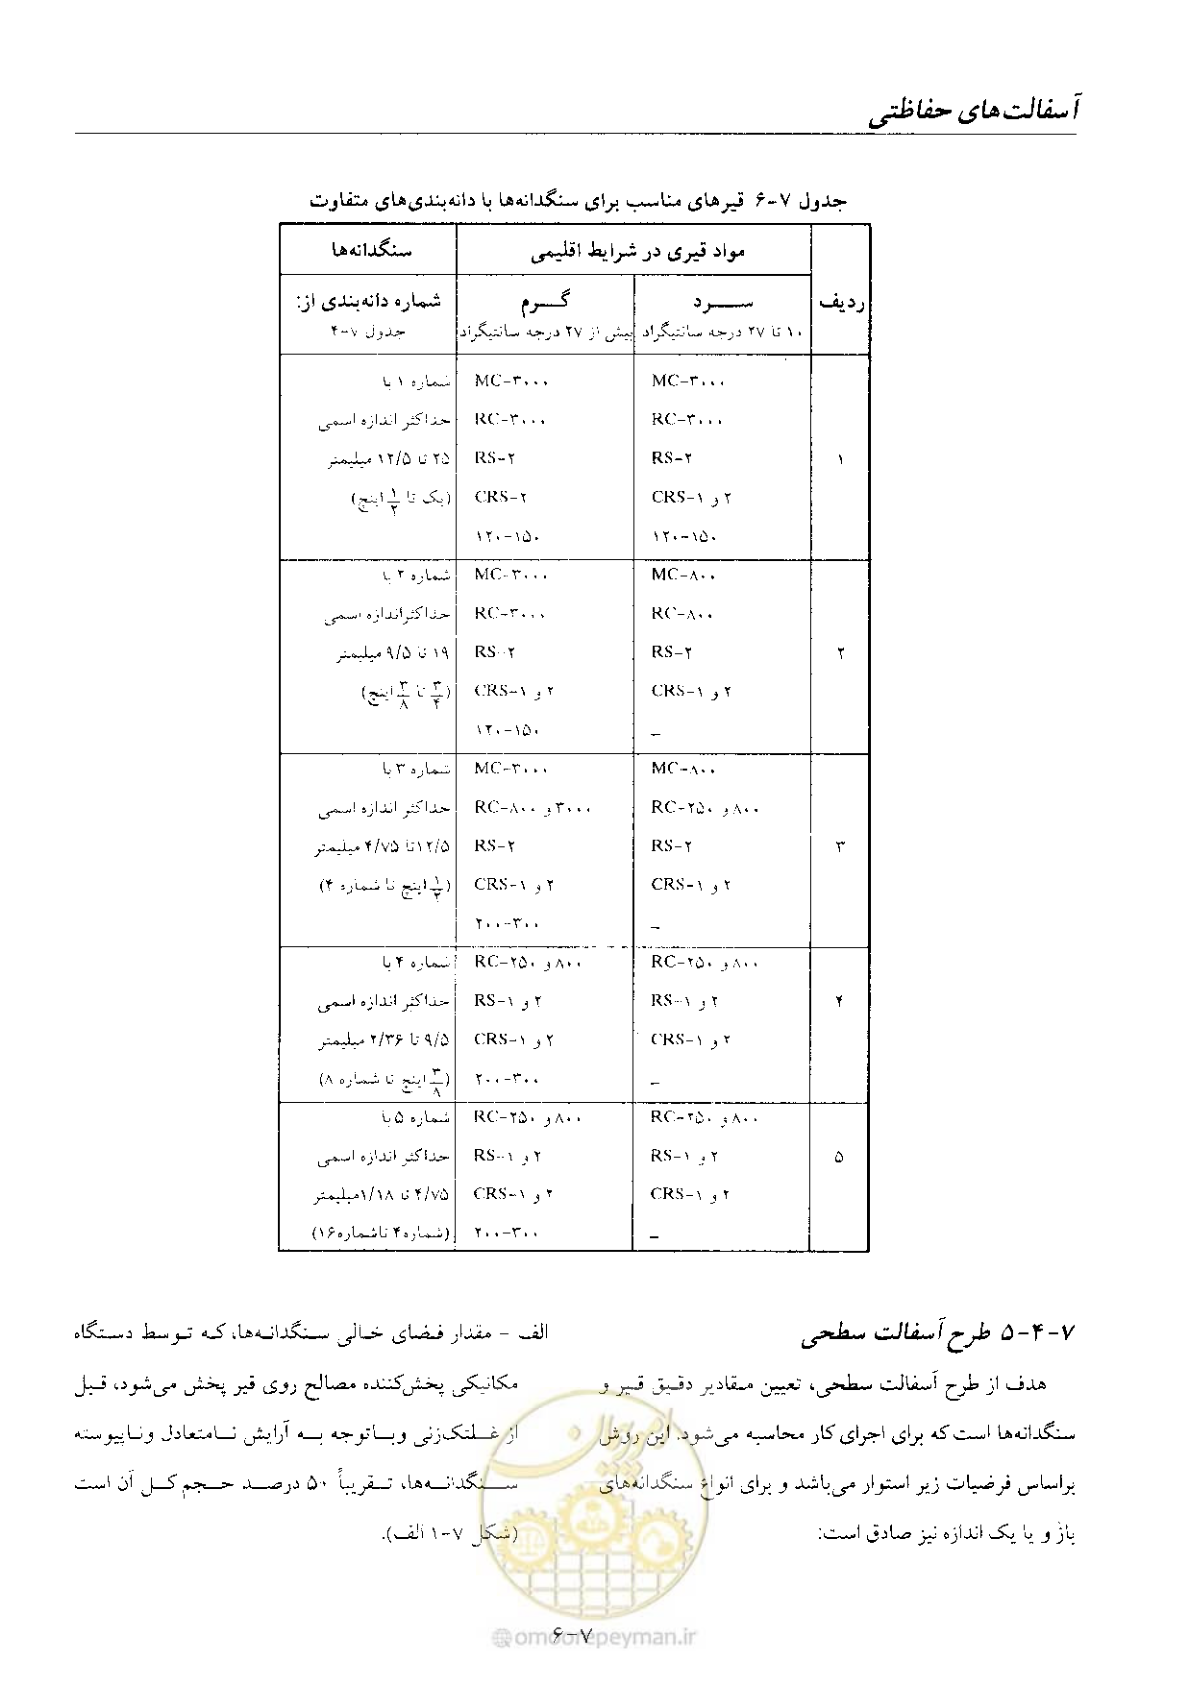 آسفالت‌های حفاظتی
جدول ۷-۶ قیرهای مناسب برای سنگدانه‌ها با دانه‌بندی‌های متفاوت
ردیف
مواد قیری در شرایط اقلیمی
سنگدانه‌ها
ســــرد
گـــرم
شماره دانه‌بندی از:
۱۰ تا ۲۷ درجه سانتیگراد
بیش از ۲۷ درجه سانتیگراد
جدول ۷-۴
۱
MC-۳۰۰۰
RC-۳۰۰۰
RS-۲
CRS-۱ و ۲
۱۲۰-۱۵۰
MC-۳۰۰۰
RC-۳۰۰۰
RS-۲
CRS-۲
۱۲۰-۱۵۰
شماره ۱ با
حداکثر اندازه اسمی
۲۵ تا ۱۲/۵ میلیمتر
(یک تا ۱/۲ اینچ)
۲
MC-۸۰۰
RC-۸۰۰
RS-۲
CRS-۱ و ۲
–
MC-۳۰۰۰
RC-۳۰۰۰
RS-۲
CRS-۱ و ۲
۱۲۰-۱۵۰
شماره ۲ با
حداکثراندازه اسمی
۱۹ تا ۹/۵ میلیمتر
(۳/۴ تا ۳/۸ اینچ)
۳
MC-۸۰۰
RC-۲۵۰ و ۸۰۰
RS-۲
CRS-۱ و ۲
–
MC-۳۰۰۰
RC-۸۰۰ و ۳۰۰۰
RS-۲
CRS-۱ و ۲
۲۰۰-۳۰۰
شماره ۳ با
حداکثر اندازه اسمی
۱۲/۵تا ۴/۷۵ میلیمتر
(۱/۲ اینچ تا شماره ۴)
۴
RC-۲۵۰ و ۸۰۰
RS-۱ و ۲
CRS-۱ و ۲
–
RC-۲۵۰ و ۸۰۰
RS-۱ و ۲
CRS-۱ و ۲
۲۰۰-۳۰۰
شماره ۴ با
حداکثر اندازه اسمی
۹/۵ تا ۲/۳۶ میلیمتر
(۳/۸ اینچ تا شماره ۸)
۵
RC-۲۵۰ و ۸۰۰
RS-۱ و ۲
CRS-۱ و ۲
–
RC-۲۵۰ و ۸۰۰
RS-۱ و ۲
CRS-۱ و ۲
۲۰۰-۳۰۰
شماره ۵ با
حداکثر اندازه اسمی
۴/۷۵ تا ۱/۱۸میلیمتر
(شماره۴ تاشماره۱۶)
۷-۴-۵ طرح آسفالت سطحی
هدف از طرح آسفالت سطحی، تعیین مقادیر دقیق قیر و
سنگدانه‌ها است که برای اجرای کار محاسبه می‌شود. این روش
براساس فرضیات زیر استوار می‌باشد و برای انواع سنگدانه‌های
باز و یا یک اندازه نیز صادق است:
الف - مقدار فضای خالی سنگدانه‌ها، که توسط دستگاه
مکانیکی پخش‌کننده مصالح روی قیر پخش می‌شود، قبل
از غلتک‌زنی وباتوجه به آرایش نامتعادل وناپیوسته
سنگدانه‌ها، تقریباً ۵۰ درصد حجم کل آن است
(شکل ۷-۱ الف).
امور پیمان
۷-۶
@omoorepeyman.ir